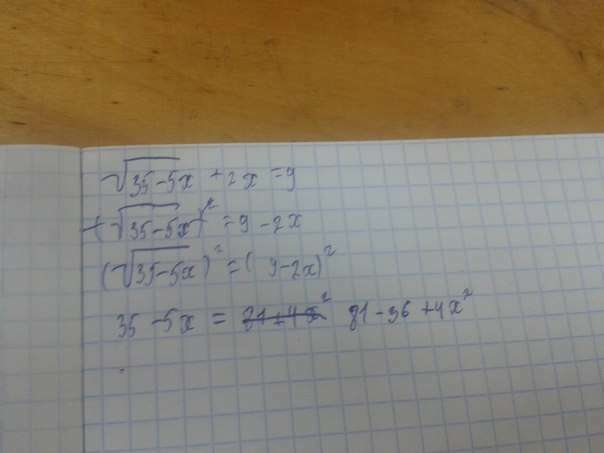 √35-5x + 2x = 9
(√35-5x)² = 9 - 2x
(√35-5x)² = (9-2x)²
35 - 5x = 81+4x² 81 - 36 + 4x²